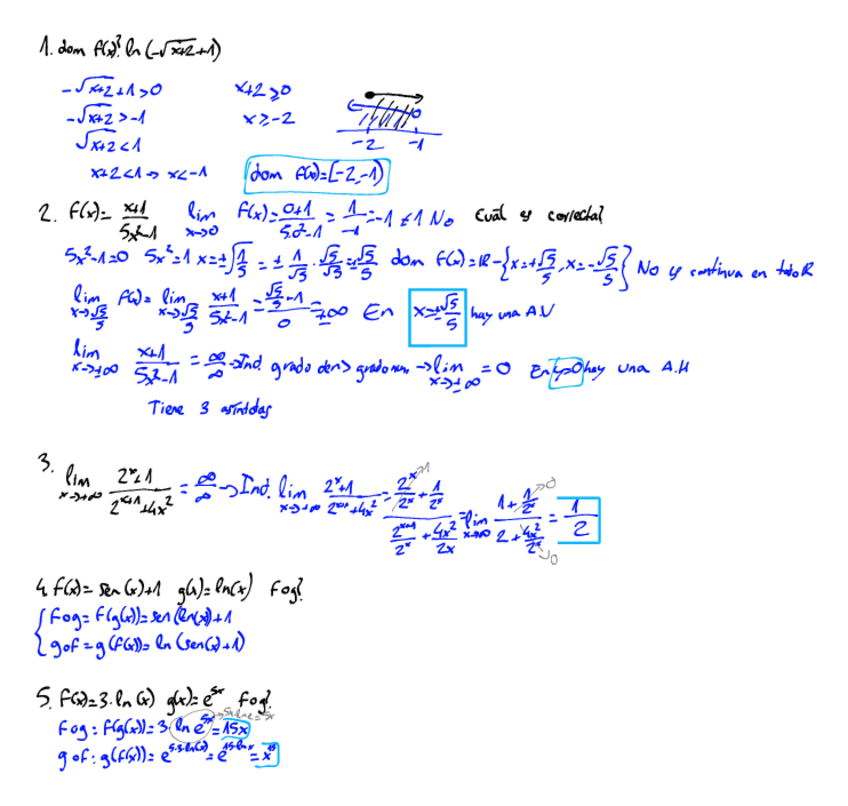 1. dom f(x)? ln(-√(x+2)+1)
-√(x+2)+1>0 x+2≥0
-√(x+2)>-1 x≥-2
√(x+2)<1 -2 -1
x+2<1 → x<-1 dom f(x)=[-2,-1)
2. f(x)= (x+1)/(5x²-1) lim x→0 f(x)= (0+1)/(5·0²-1) = 1/-1 =-1≠1 No Cuál es correcta?
5x²-1=0 5x²=1 x=±√(1/5) = ± 1/√5 · √5/√5 = ±√5/5 dom f(x)=ℝ-{x=+√5/5, x=-√5/5} No es continua en todo ℝ
lim x→√5/5 f(x)= lim x→√5/5 (x+1)/(5x²-1) = (√5/5-1)/0 = ±∞ En x=±√5/5 hay una A.V
lim x→±∞ (x+1)/(5x²-1) = ∞/∞ → Ind. grado den > grado num → lim x→±∞ = 0 En y=0 hay una A.H
Tiene 3 asíntotas
3. lim x→+∞ (2ˣ+1)/(2ˣ⁺¹+4x²) = ∞/∞ → Ind. lim x→+∞ (2ˣ+1)/(2ˣ⁺¹+4x²) = (2ˣ/2ˣ + 1/2ˣ)/(2ˣ⁺¹/2ˣ + 4x²/2x) = lim x→∞ (1+1/2ˣ)/(2+4x²/2ˣ) = 1/2
4. f(x)= sen(x)+1 g(x)=ln(x) fog?
fog= f(g(x))=sen(ln(x))+1
gof = g(f(x))= ln(sen(x)+1)
5. f(x)=3·ln(x) g(x)= e⁵ˣ fog?
fog: f(g(x))= 3 ln e⁵ˣ = 15x → 5x ln e = 5x
gof: g(f(x))= e^(5·3·ln(x)) = e^(15·ln x) = x¹⁵